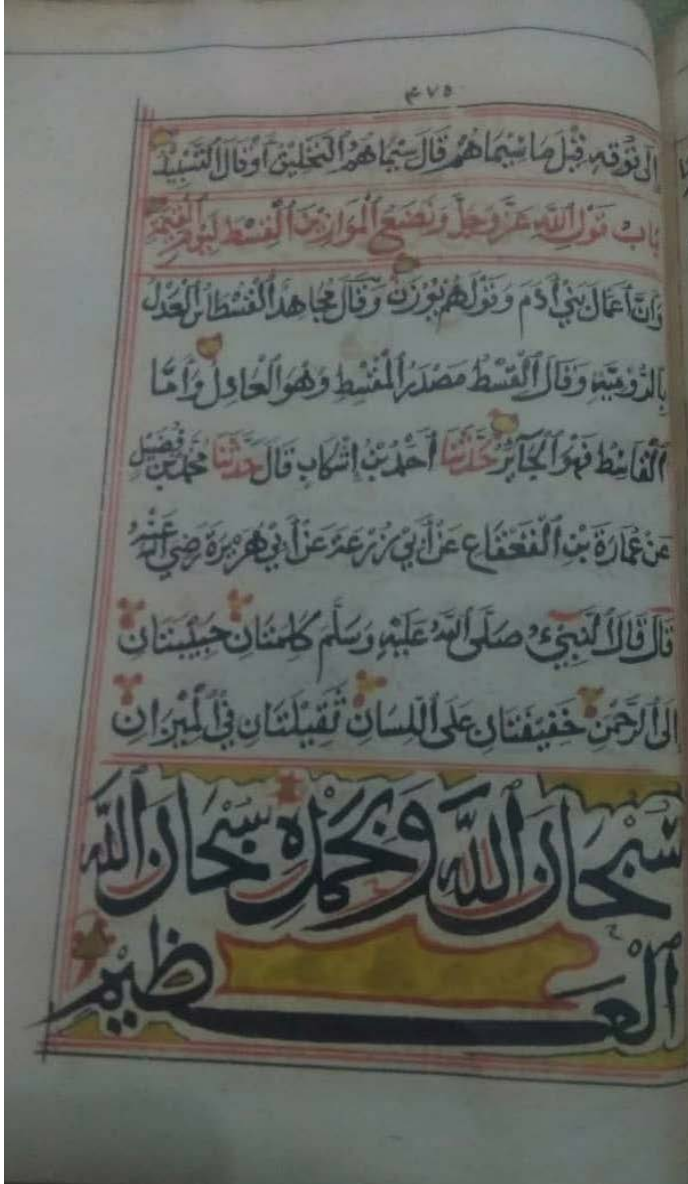 ٤٧٥
إلى فوقه قيل ما سيماهم قال سيماهم التحليق أو قال التسبيد
باب قول الله عز وجل ونضع الموازين القسط ليوم القيمة
وأن أعمال بني آدم وقولهم يوزن وقال مجاهد القسطاس العدل
بالرومية وقال القسط مصدر المقسط وهو العادل وأما
القاسط فهو الجآئر حدثنا أحمد بن إشكاب قال حدثنا محمد بن فضيل
عن عمارة بن القعقاع عن أبي زرعة عن أبي هريرة رضي الله عنه
قال قال النبيء صلى الله عليه وسلم كلمتان حبيبتان
إلى الرحمن خفيفتان على اللسان ثقيلتان في الميزان
سبحان الله وبحمده سبحان الله
العظيم